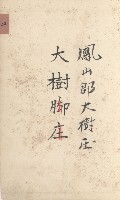 鳳山郡大樹庄
大樹脚庄